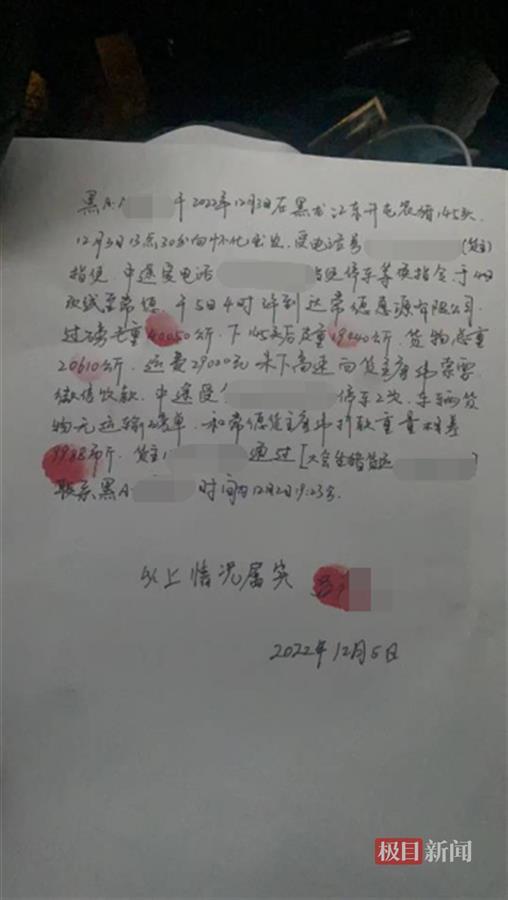 黑A·A 于2022年12月3日在黑龙江东升屯装猪145头.
12月3日13点30分向怀化出发.受电话号 (货主)
指使.中途受电话 指使停车等候指令于4日
改线至常德.于5日4时许到达常德惠源有限公司.
过磅毛重40050公斤.下145头后皮重19440公斤.货物总重
20610公斤.运费29000元未下高速向货主 索要
微信收款.中途受 停车2次.车辆货
物无运输磅单.和常德货主 重量相差
9988市斤.货主 通过[大会生猪货运 ]
联系黑A· 时间为12月2日19:23分.
以上情况属实
2022年12月5日
极目新闻